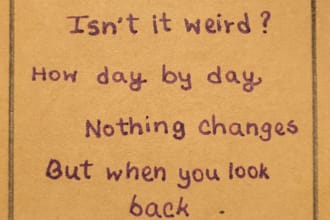 Isn't it weird?
How day by day,
Nothing changes
But when you look
back .